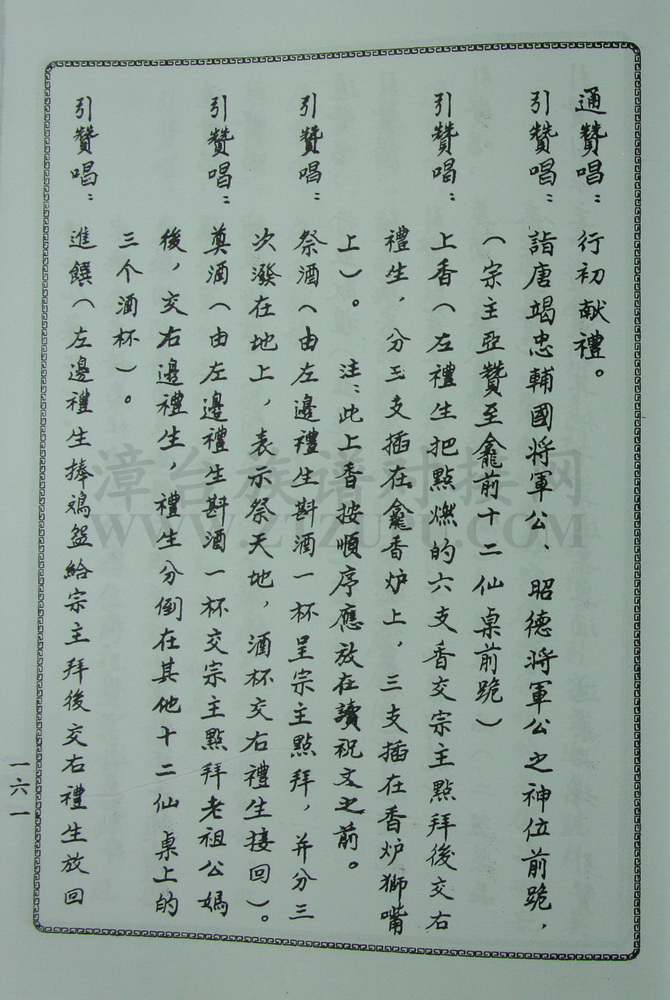 通贊唱：行初献禮。
引贊唱：詣唐竭忠輔國将軍公、昭德将軍公之神位前跪，
（宗主亞贊至龕前十二仙桌前跪）
引贊唱：上香（左禮生把點燃的六支香交宗主點拜後交右
禮生，分三支插在龕香炉上，三支插在香炉獅嘴
上）。 注：此上香按順序應放在讀祝文之前。
引贊唱：祭酒（由左邊禮生斟酒一杯呈宗主點拜，并分三
次潑在地上，表示祭天地，酒杯交右禮生接回）。
引贊唱：奠酒（由左邊禮生斟酒一杯交宗主點拜老祖公媽
後，交右邊禮生，禮生分倒在其他十二仙桌上的
三个酒杯）。
引贊唱：進饌（左邊禮生捧鸡盆給宗主拜後交右禮生放回
一六一
漳台族谱对接网
WWW.ZTZUPU.COM